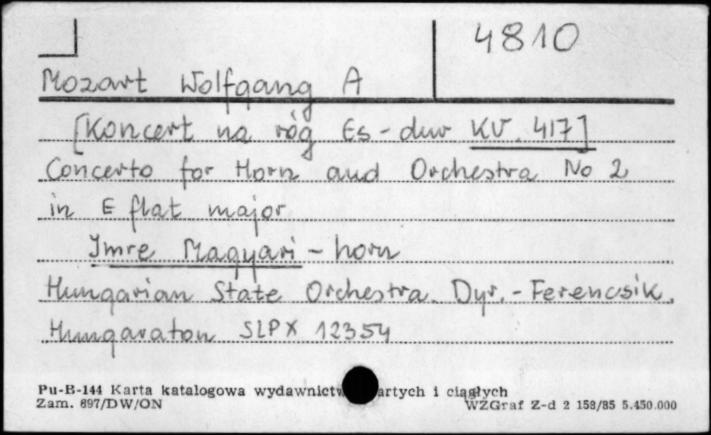 4810
Mozart Wolfgang A
[Koncert na róg Es-dur KV. 417]
Concerto for Horn and Orchestra No 2
in E flat major
Imre Magyari - horn
Hungarian State Orchestra. Dyr. - Ferencsik.
Hungaraton SLPX 12354
Pu-B-144 Karta katalogowa wydawnictw artych i ciągłych
Zam. 697/DW/ON WZGraf Z-d 2 158/85 5.450.000